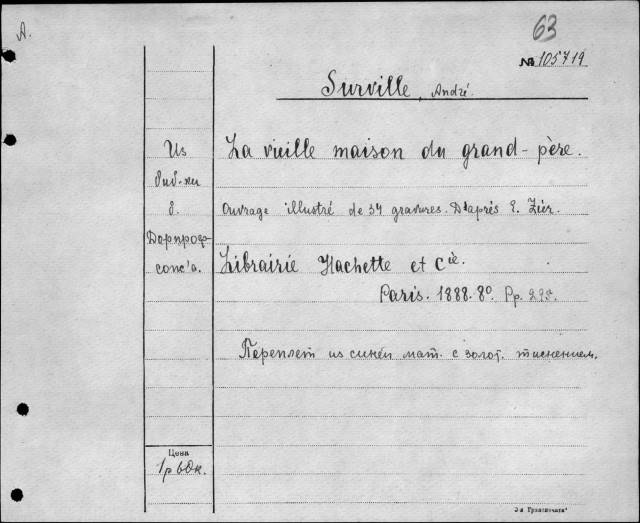 A.
63
№ 105719
Surville, André.
Из
биб-ки
б.
Дорпроф-
сож'а.
La vieille maison du grand-père.
Ouvrage illustré de 34 gravures. D'après E. Zier.
Librairie Hachette et Cie.
Paris. 1888. 8°. Pp. 295.
Переплет из синей мат. с золот. тиснением.
Цена
1р 60к.